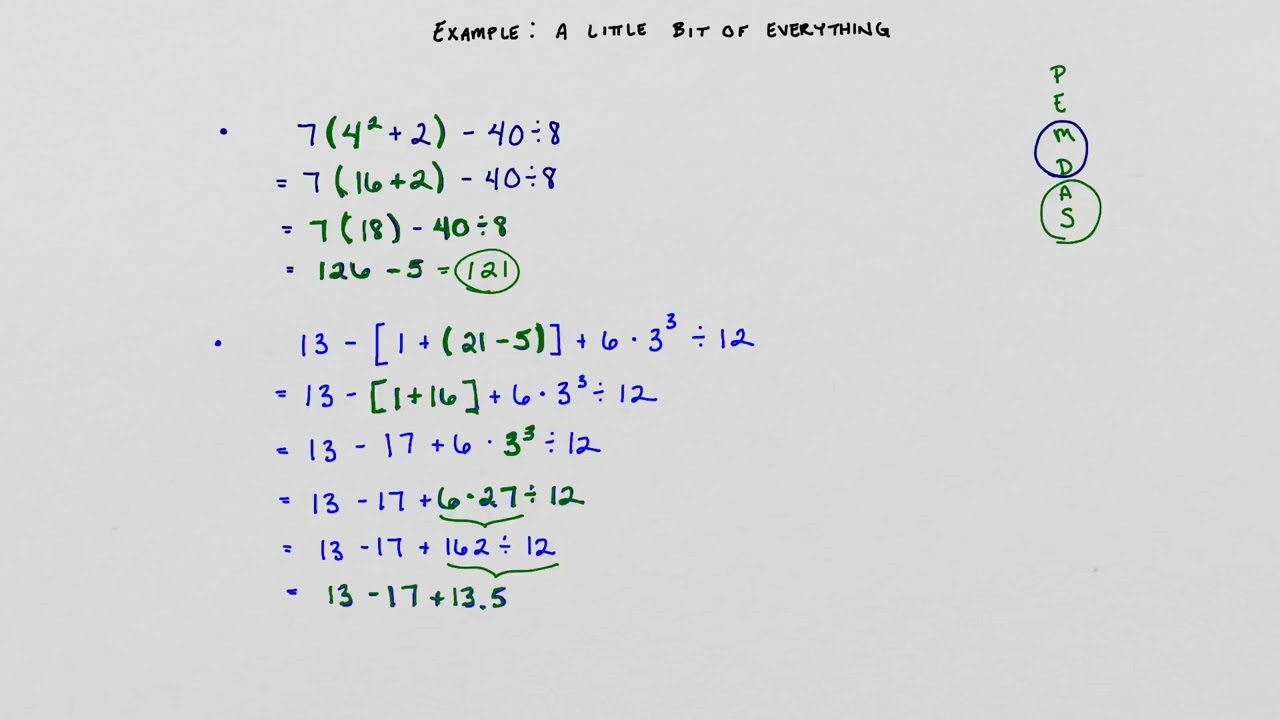 EXAMPLE: A LITTLE BIT OF EVERYTHING
P
E
M
D
A
S
• 7(4² + 2) - 40÷8
= 7(16+2) - 40÷8
= 7(18) - 40÷8
= 126 - 5 = 121
• 13 - [1 + (21-5)] + 6 · 3³ ÷ 12
= 13 - [1+16] + 6 · 3³ ÷ 12
= 13 - 17 + 6 · 3³ ÷ 12
= 13 - 17 + 6 · 27 ÷ 12
= 13 - 17 + 162 ÷ 12
= 13 - 17 + 13.5